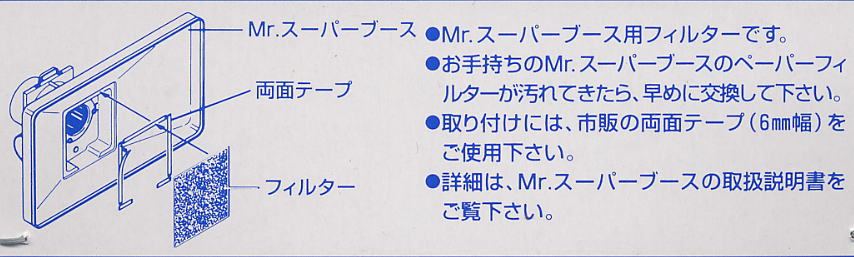 Mr.スーパーブース
両面テープ
フィルター
●Mr.スーパーブース用フィルターです。
●お手持ちのMr.スーパーブースのペーパーフィ
ルターが汚れてきたら、早めに交換して下さい。
●取り付けには、市販の両面テープ(6㎜幅)を
ご使用下さい。
●詳細は、Mr.スーパーブースの取扱説明書を
ご覧下さい。